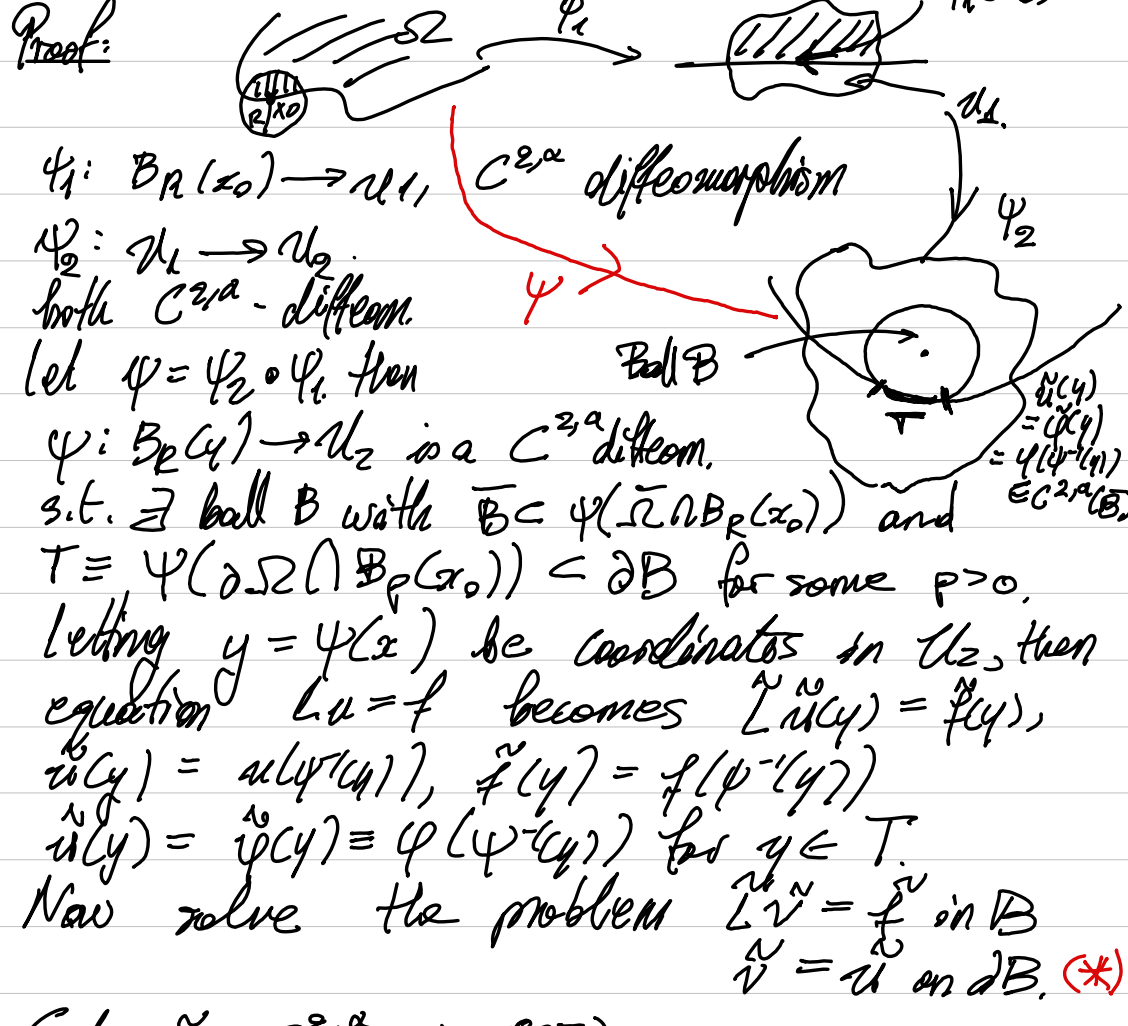 Proof:
Ω
ψ₁
R x₀
U₁.
ψ₁: B_R(x₀) ⟶ U₁, C^{2,α} diffeomorphism
ψ₂
ψ₂: U₁ ⟶ U₂.
both C^{2,α} - diffeom.
ψ
Ball B
let ψ = ψ₂ ∘ ψ₁. then
ũ(y)
= φ̃(y)
= φ(ψ⁻¹(y))
∈ C^{2,α}(B̄)
T
ψ: B_R(y) → U₂ is a C^{2,α} diffeom.
s.t. ∃ ball B with B̄ ⊂ ψ(Ω̄ ∩ B_R(x₀)) and
T ≡ ψ(∂Ω ⋂ B_ρ(x₀)) ⊂ ∂B for some ρ>0.
letting y = ψ(x) be coordinates in U₂, then
equation Lu = f becomes L̃ũ(y) = f̃(y),
ũ(y) = u(ψ⁻¹(y)), f̃(y) = f(ψ⁻¹(y))
ũ(y) = φ̃(y) ≡ φ(ψ⁻¹(y)) for y ∈ T.
Now solve the problem L̃ṽ = f̃ in B
ṽ = ũ on ∂B. (*)